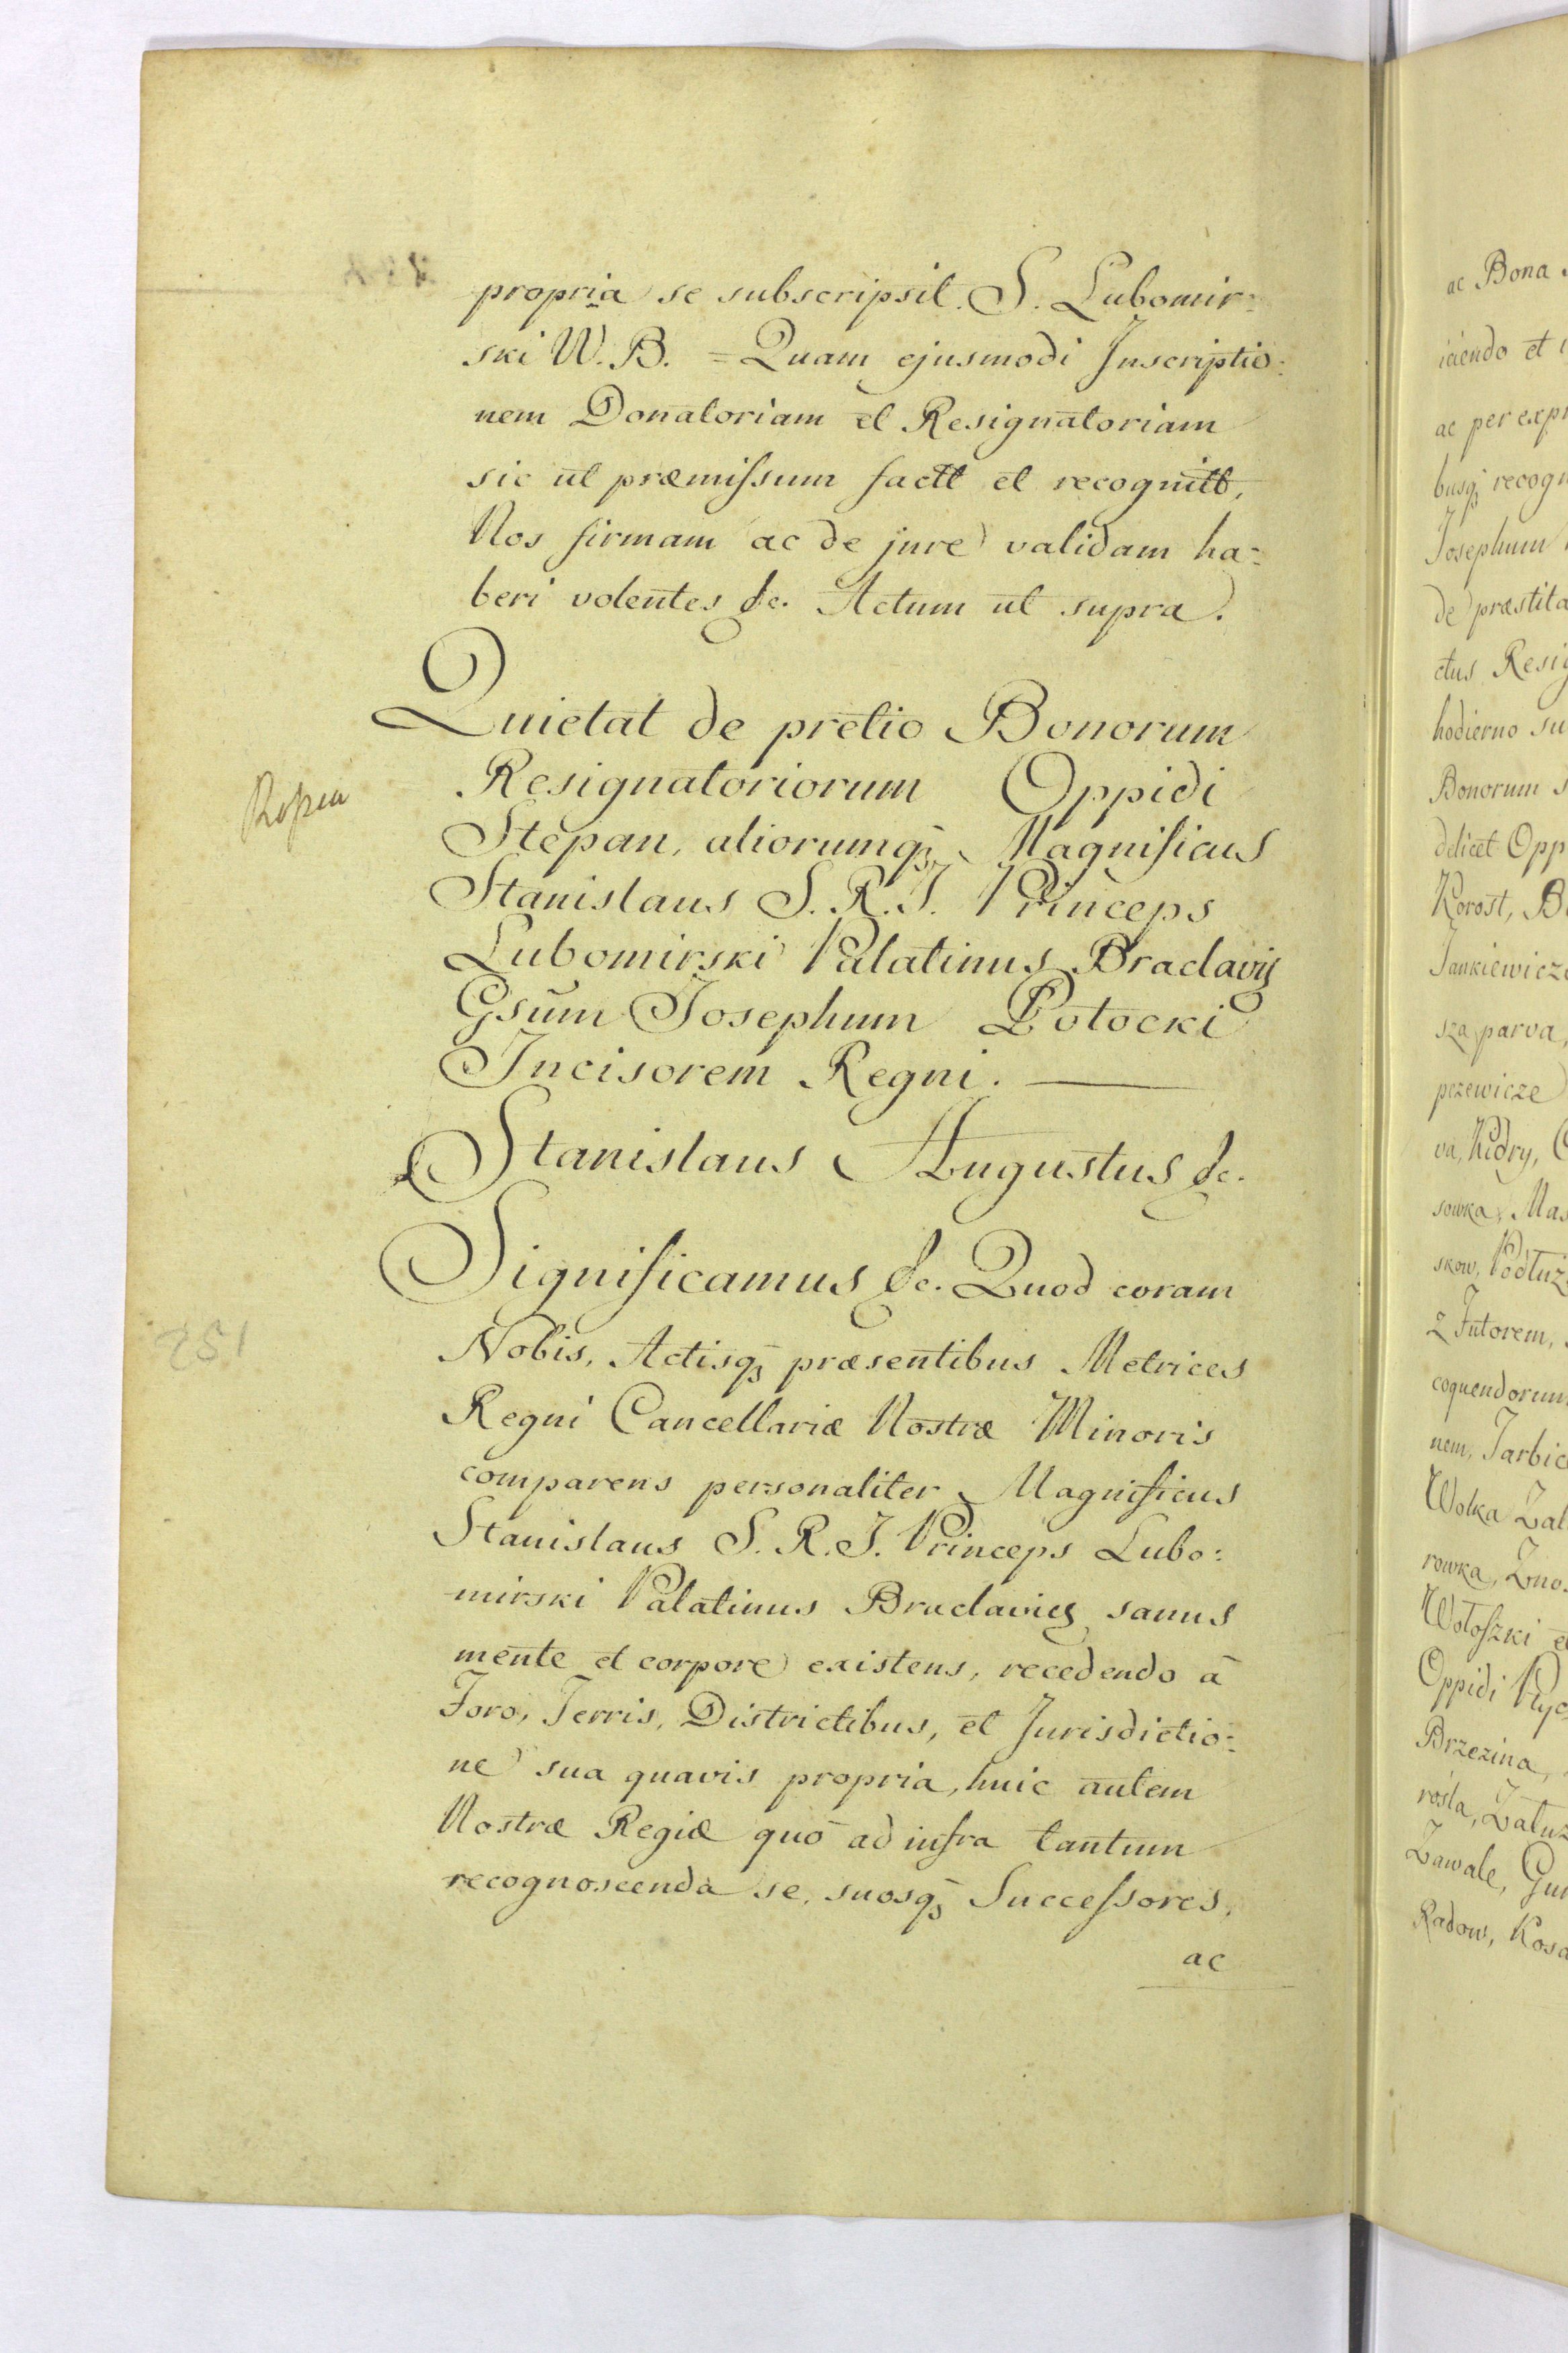 propria se subscripsit. S. Lubomir:
ski W. B. = Quam ejusmodi Inscriptio:
nem Donatoriam et Resignatoriam
sic ut præmiſsum factt et recognitt,
Nos firmam ac de jure validam ha:
beri volentes &c. Actum ut supra.
Quietat de pretio Bonorum
Resignatoriorum Oppidi
Stepan, aliorumqȝ Magnificus
Stanislaus S. R. I. Princeps
Lubomirski Palatinus Braclaviȩ
Gsum Josephum Potocki
Incisorem Regni.
Stanislaus Augustus &c.
Significamus &c. Quod coram
Nobis, Actisqȝ præsentibus Metrices
Regni Cancellariæ Nostræ Minoris
comparens personaliter Magnificus
Stanislaus S. R. I. Princeps Lubo:
mirski Palatinus Braclaviȩ sanus
mente et corpore existens, recedendo à
Foro, Terris, Districtibus, et Jurisdictio:
ne sua quavis propria, huic autem
Nostræ Regiæ quo ad infra tantum
recognoscenda se, suosqȝ Succeſsores,
ac
251
ac Bona
iciendo et
ac per expr
busqȝ recogn
Josephum
de præstita
ctus Resig
hodierno su
Bonorum s
delicet Opp
Korost, B
Jankiewicz
sza parva,
pczewicze
va, Kidry,
sowka, Mas
skow, Podłuż
z Futorem,
coquendorum
nem, Jarbic
Wolka Zal
rowka, Zno
Wołoſzki e
Oppidi
Brzezina,
rosla, Załuz
Zawale, Gu
Radow, Kosa